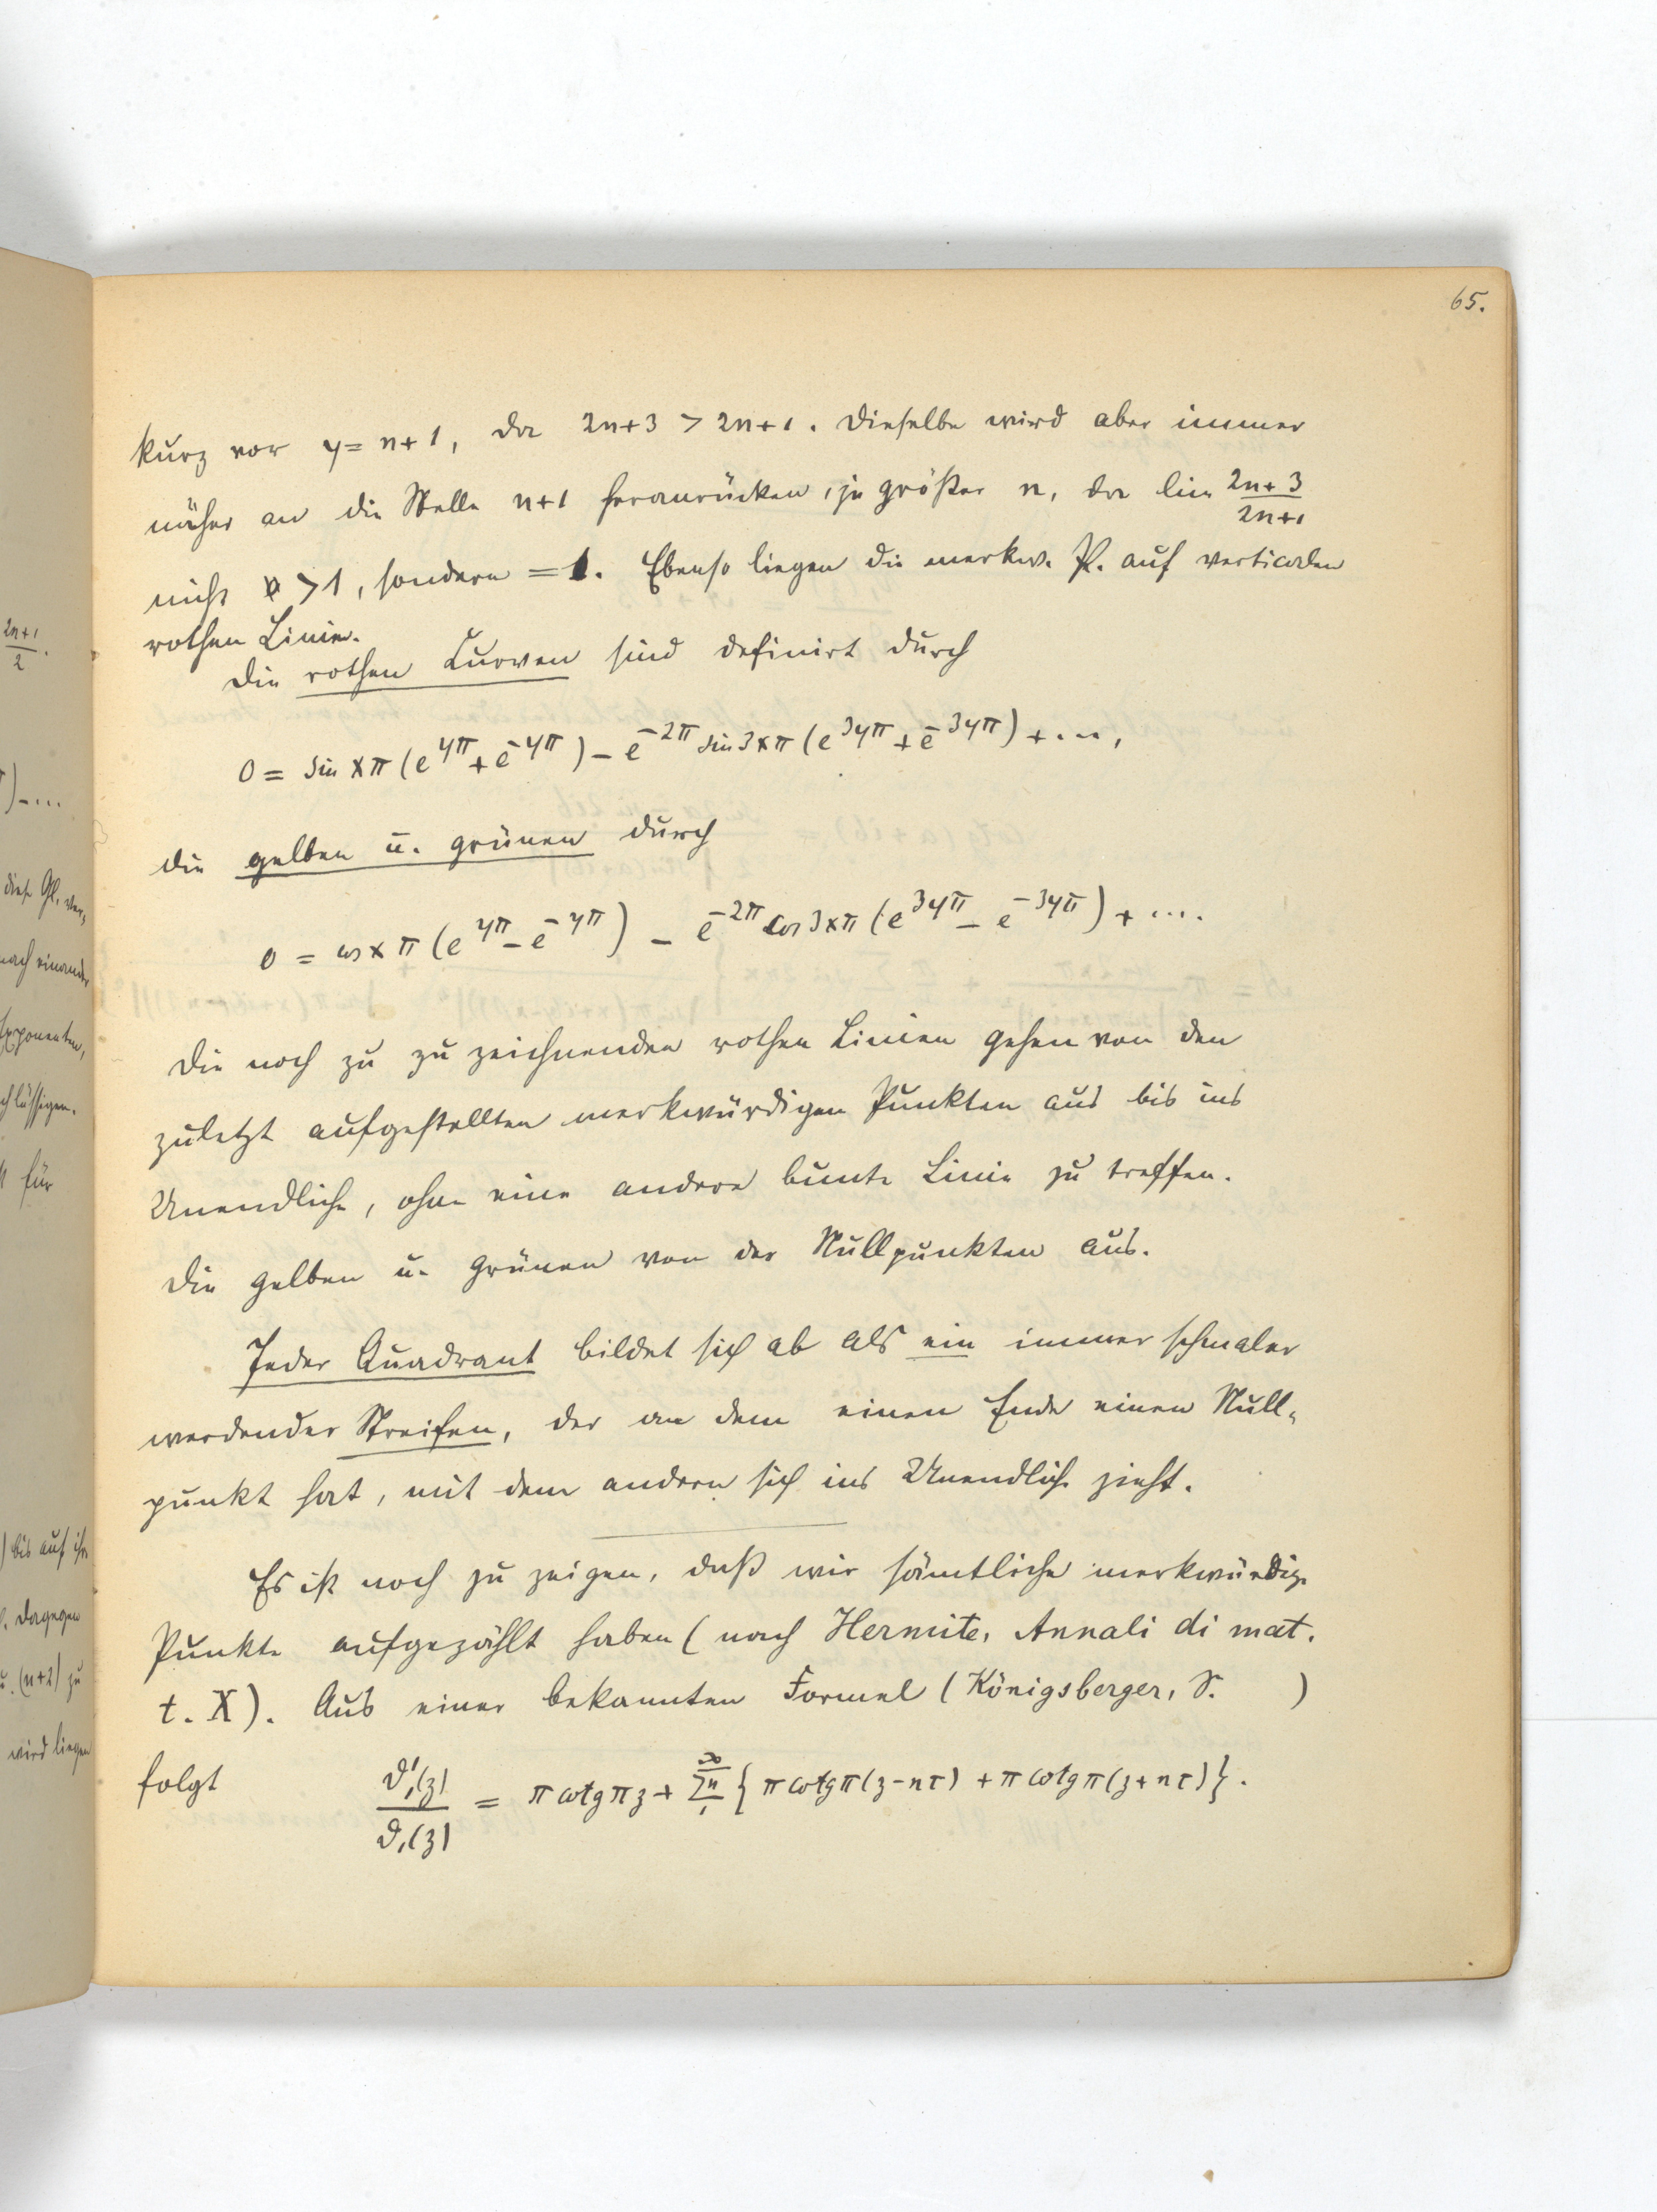 65.
kurz vor y = n+1, da 2n+3 > 2n+1. Dieselbe wird aber immer
näher an die Stelle n+1 heranrücken, je größer n, da lim (2n+3)/(2n+1)
nicht > 1, sondern = 1. Ebenso liegen die merkw. P. auf verticalen
rothen Linien.
Die rothen Curven sind definirt durch
0 = sin xπ (e^{yπ} + e^{-yπ}) − e^{-2π} sin 3xπ (e^{3yπ} + e^{-3yπ}) + ...,
die gelben u. grünen durch
0 = cos xπ (e^{yπ} − e^{-yπ}) − e^{-2π} cos 3xπ (e^{3yπ} − e^{-3yπ}) + ....
Die noch zu zu zeichnenden rothen Linien gehen von den
zuletzt aufgestellten merkwürdigen Punkten aus bis ins
Unendliche, ohne eine andere bunte Linie zu treffen.
Die gelben u. grünen von der Nullpunkten aus.
Jeder Quadrant bildet sich ab als ein immer schmaler
werdender Streifen, der an dem einen Ende einen Null-
punkt hat, mit dem andern sich ins Unendliche zieht.
Es ist noch zu zeigen, daß wir sämtliche merkwürdige
Punkte aufgezählt haben (nach Hermite, Annali di mat.
t. X). Aus einer bekannten Formel (Königsberger, S. )
folgt ϑ'₁(z)/ϑ₁(z) = π cotg πz + Σₙ₁^∞ {π cotg π(z−nτ) + π cotg π(z+nτ)}.
(2n+1)/2.
)-...
diese Gl. ver-
nach einander
Exponenten,
für
) bis auf ihr
dagegen
u. (n+2) zu
wird liegen